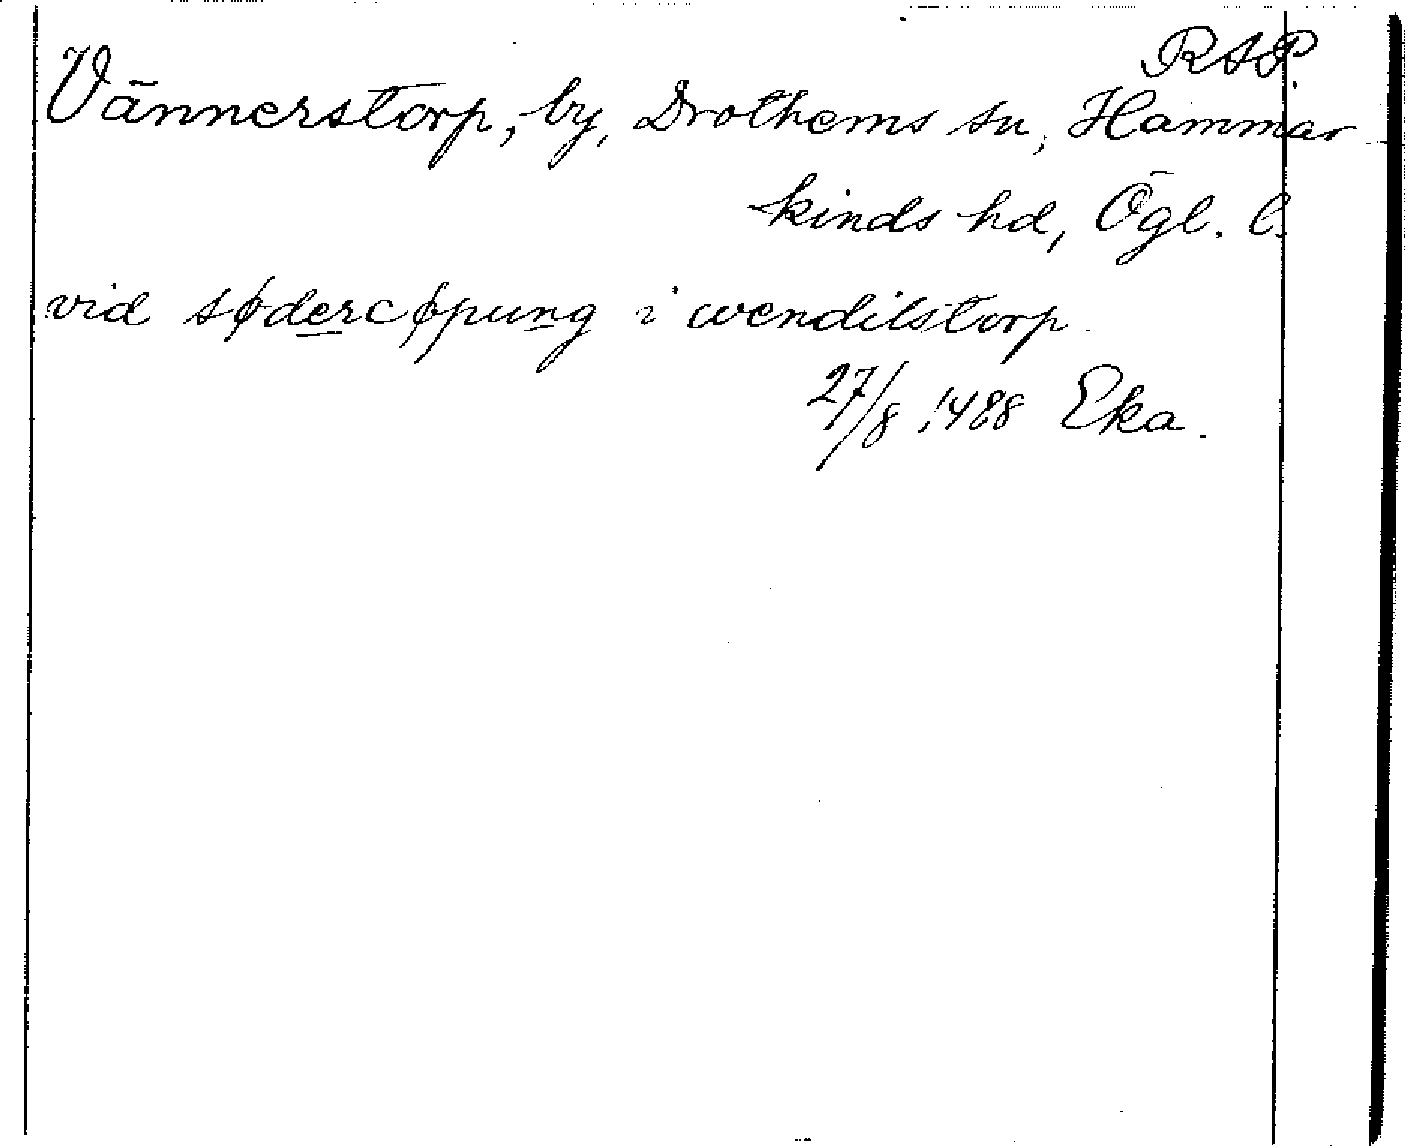 RAP.
Vännerstorp, by, Drothems sn, Hammar
kinds hd, Ögl. l.
vid sødercøpung i wendilstorp.
27/8 1488 Eka.